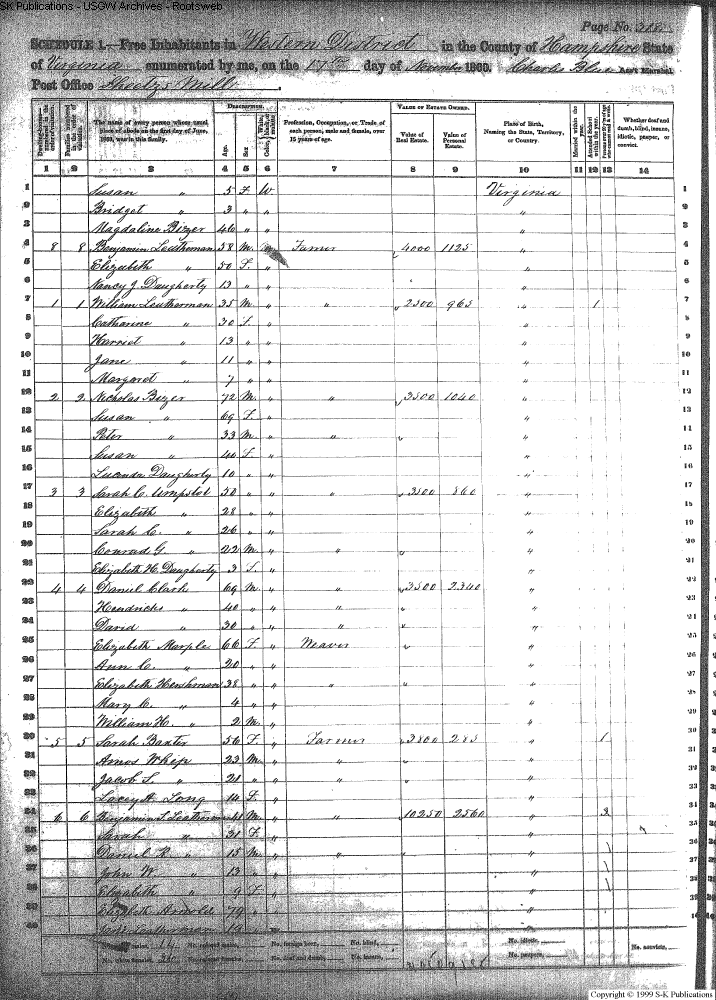 S-K Publications - USGW Archives - Rootsweb
Page No.
SCHEDULE 1.—Free Inhabitants in Western District in the County of Hampshire State
of Virginia enumerated by me, on the 17th day of November 1860. Charles Blue Ass't Marshal
Post Office Sheetz's Mill
DESCRIPTION. VALUE OF ESTATE OWNED.
The name of every person whose usual place of abode on the first day of June, 1860, was in this family.
Age. Sex.
Profession, Occupation, or Trade of each person, male and female, over 15 years of age.
Value of Real Estate. Value of Personal Estate.
Place of Birth, Naming the State, Territory, or Country.
Married within the year. Attended School within the year.
Whether deaf and dumb, blind, insane, idiotic, pauper, or convict.
1 2 3 4 5 6 7 8 9 10 11 12 13 14
1 Susan " 5 F W Virginia 1
2 Bridget " 3 " " " 2
3 Magdaline Bizer 46 " " " 3
4 8 8 Benjamin Leatherman 58 M Farmer 4000 1125 " 4
5 Elizabeth " 50 F " " 5
6 Nancy J. Daugherty 13 " " " 6
7 1 1 William Leatherman 35 M " " 2500 965 " 1 7
8 Catharine " 30 F " " 8
9 Harriet " 13 " " " 9
10 Jane " 11 " " " 10
11 Margaret " 7 " " " 11
12 2 2 Nicholas Bizer 72 M " " 3500 1040 " 12
13 Susan " 69 F " " 13
14 Peter " 33 M " " "
15 Susan " 40 F " "
16 Lucinda Daugherty 10 " " "
17 3 3 Sarah C. Umpstot 50 " " " 3500 860 "
18 Elizabeth " 28 " " "
19 Sarah C. " 26 " " "
20 Conrad G. " 22 M " " "
21 Elizabeth H. Daugherty 3 F " "
22 4 4 Daniel Clark 69 M " " 3500 2340 "
23 Hendricks " 40 " " " "
24 David " 30 " " " "
25 Elizabeth Marple 66 F " Weaver "
26 Ann C. " 20 " " "
27 Elizabeth Hershman 38 " " " "
28 Mary C. " 4 " " "
29 William H. " 2 M " "
30 5 5 Sarah Baxter 56 F " Farmer 3800 285 " 1
31 Amos Whip 23 M " " "
32 Jacob S. " 21 " " " "
33 Lacey A. Long 14 F " "
34 6 6 Benjamin S Leatherman 41 M " " 10250 2560 "
35 Sarah " 31 F " "
36 Daniel R. " 15 M " " "
37 John W. " 13 " " "
38 Elizabeth " 9 F " "
39 Elizabeth Arnold 79 " " "
40 Leatherman 19
No. white males, 14 No. colored males, No. foreign born, No. blind, No. idiotic, No. convicts,
No. white females, No. colored females, No. deaf and dumb, No. insane, No. paupers,
Copyright © 1999 S-K Publications